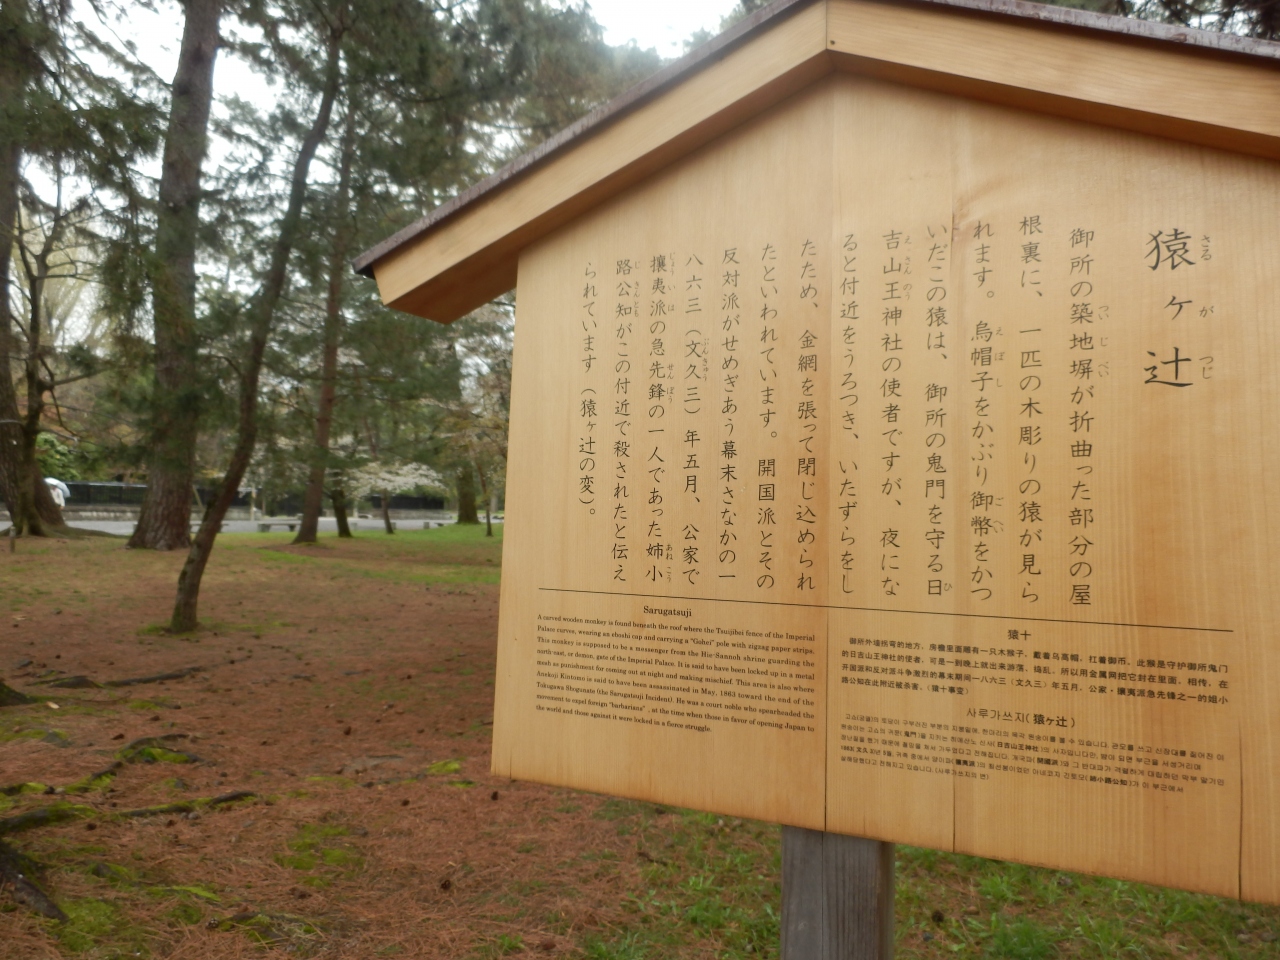 猿ヶ辻
さるがつじ
御所の築地塀が折曲った部分の屋
根裏に、一匹の木彫りの猿が見ら
れます。烏帽子をかぶり御幣をかつ
いだこの猿は、御所の鬼門を守る日
吉山王神社の使者ですが、夜にな
ると付近をうろつき、いたずらをし
たため、金網を張って閉じ込められ
たといわれています。開国派とその
反対派がせめぎあう幕末さなかの一
八六三（文久三）年五月、公家で
攘夷派の急先鋒の一人であった姉小
路公知がこの付近で殺されたと伝え
られています（猿ヶ辻の変）。
Sarugatsuji
A carved wooden monkey is found beneath the roof where the Tsuijibei fence of the Imperial
Palace curves, wearing an eboshi cap and carrying a "Gohei" pole with zigzag paper strips.
This monkey is supposed to be a messenger from the Hie-Sannoh shrine guarding the
north-east, or demon, gate of the Imperial Palace. It is said to have been locked up in a metal
mesh as punishment for coming out at night and making mischief. This area is also where
Anekoji Kintomo is said to have been assassinated in May, 1863 toward the end of the
Tokugawa Shogunate (the Sarugatsuji Incident). He was a court noble who spearheaded the
movement to expel foreign "barbarians", at the time when those in favor of opening Japan to
the world and those against it were locked in a fierce struggle.
猿十
御所外墙拐弯的地方，房檐里面雕有一只木猴子，戴着乌高帽，扛着御币。此猴是守护御所鬼门
的日吉山王神社的使者，可是一到晚上就出来游荡，捣乱，所以用金属网把它封在里面。相传，在
开国派和反对派斗争激烈的幕末期间一八六三（文久三）年五月，公家・攘夷派急先锋之一的姐小
路公知在此附近被杀害。（猿十事变）
사루가쓰지(猿ヶ辻)